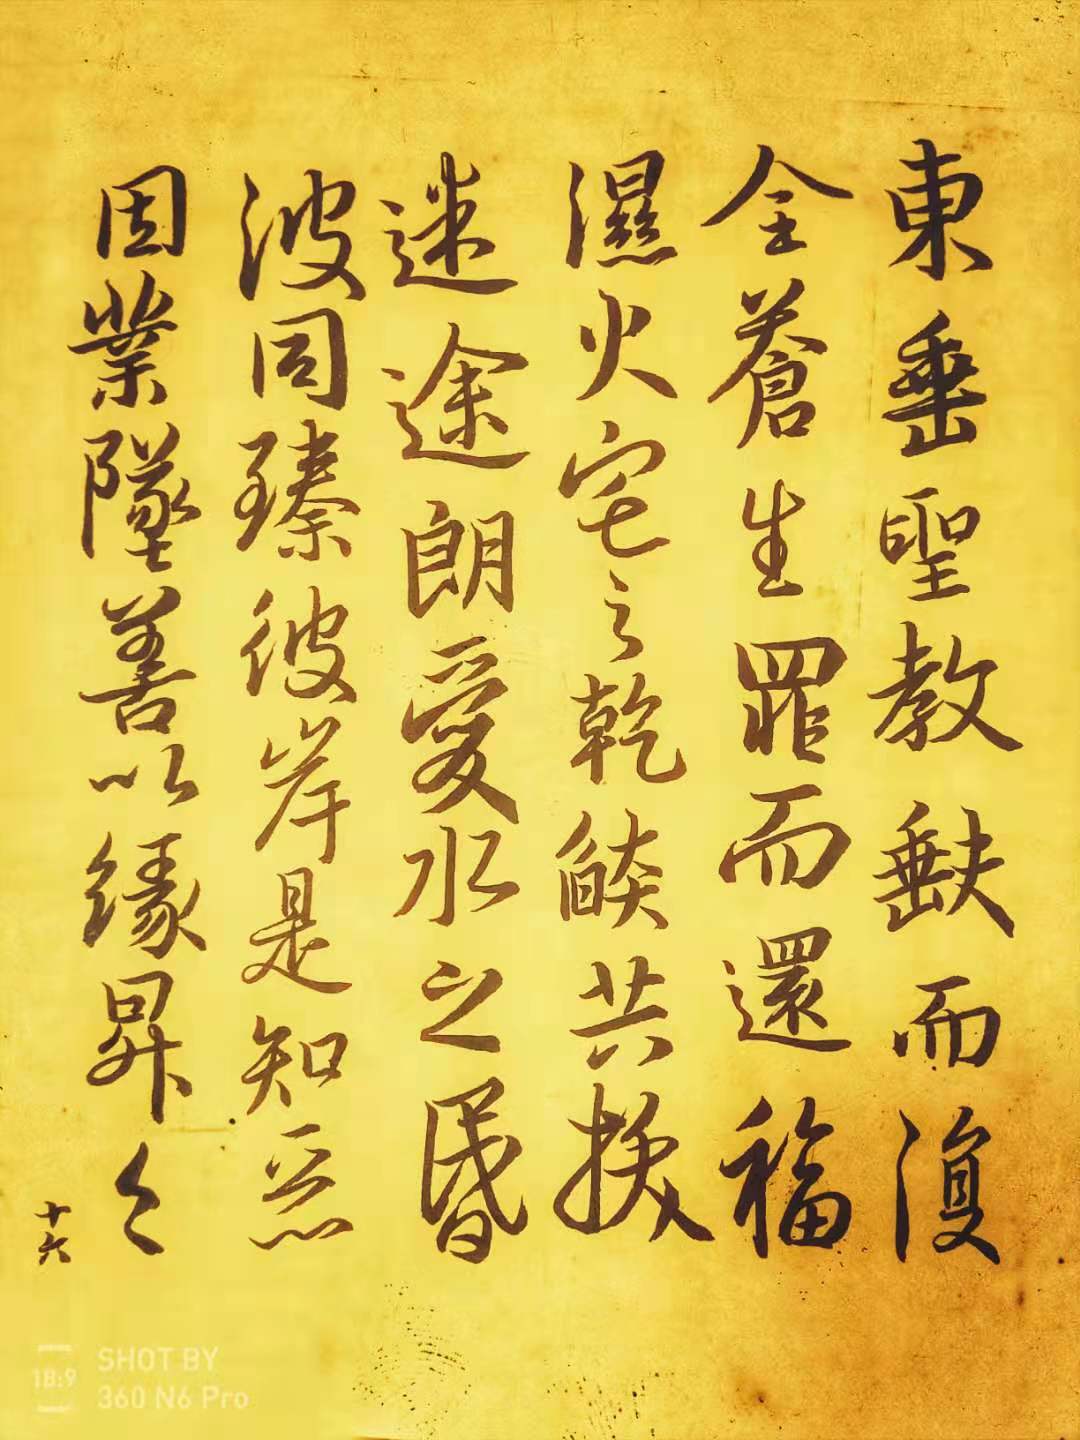 東垂聖教缺而復
全蒼生罪而還福
濕火宅之乾燄共拔
迷途朗愛水之昏
波同臻彼岸是知惡
因業墜善以緣昇々
十六
18:9
SHOT BY
360 N6 Pro